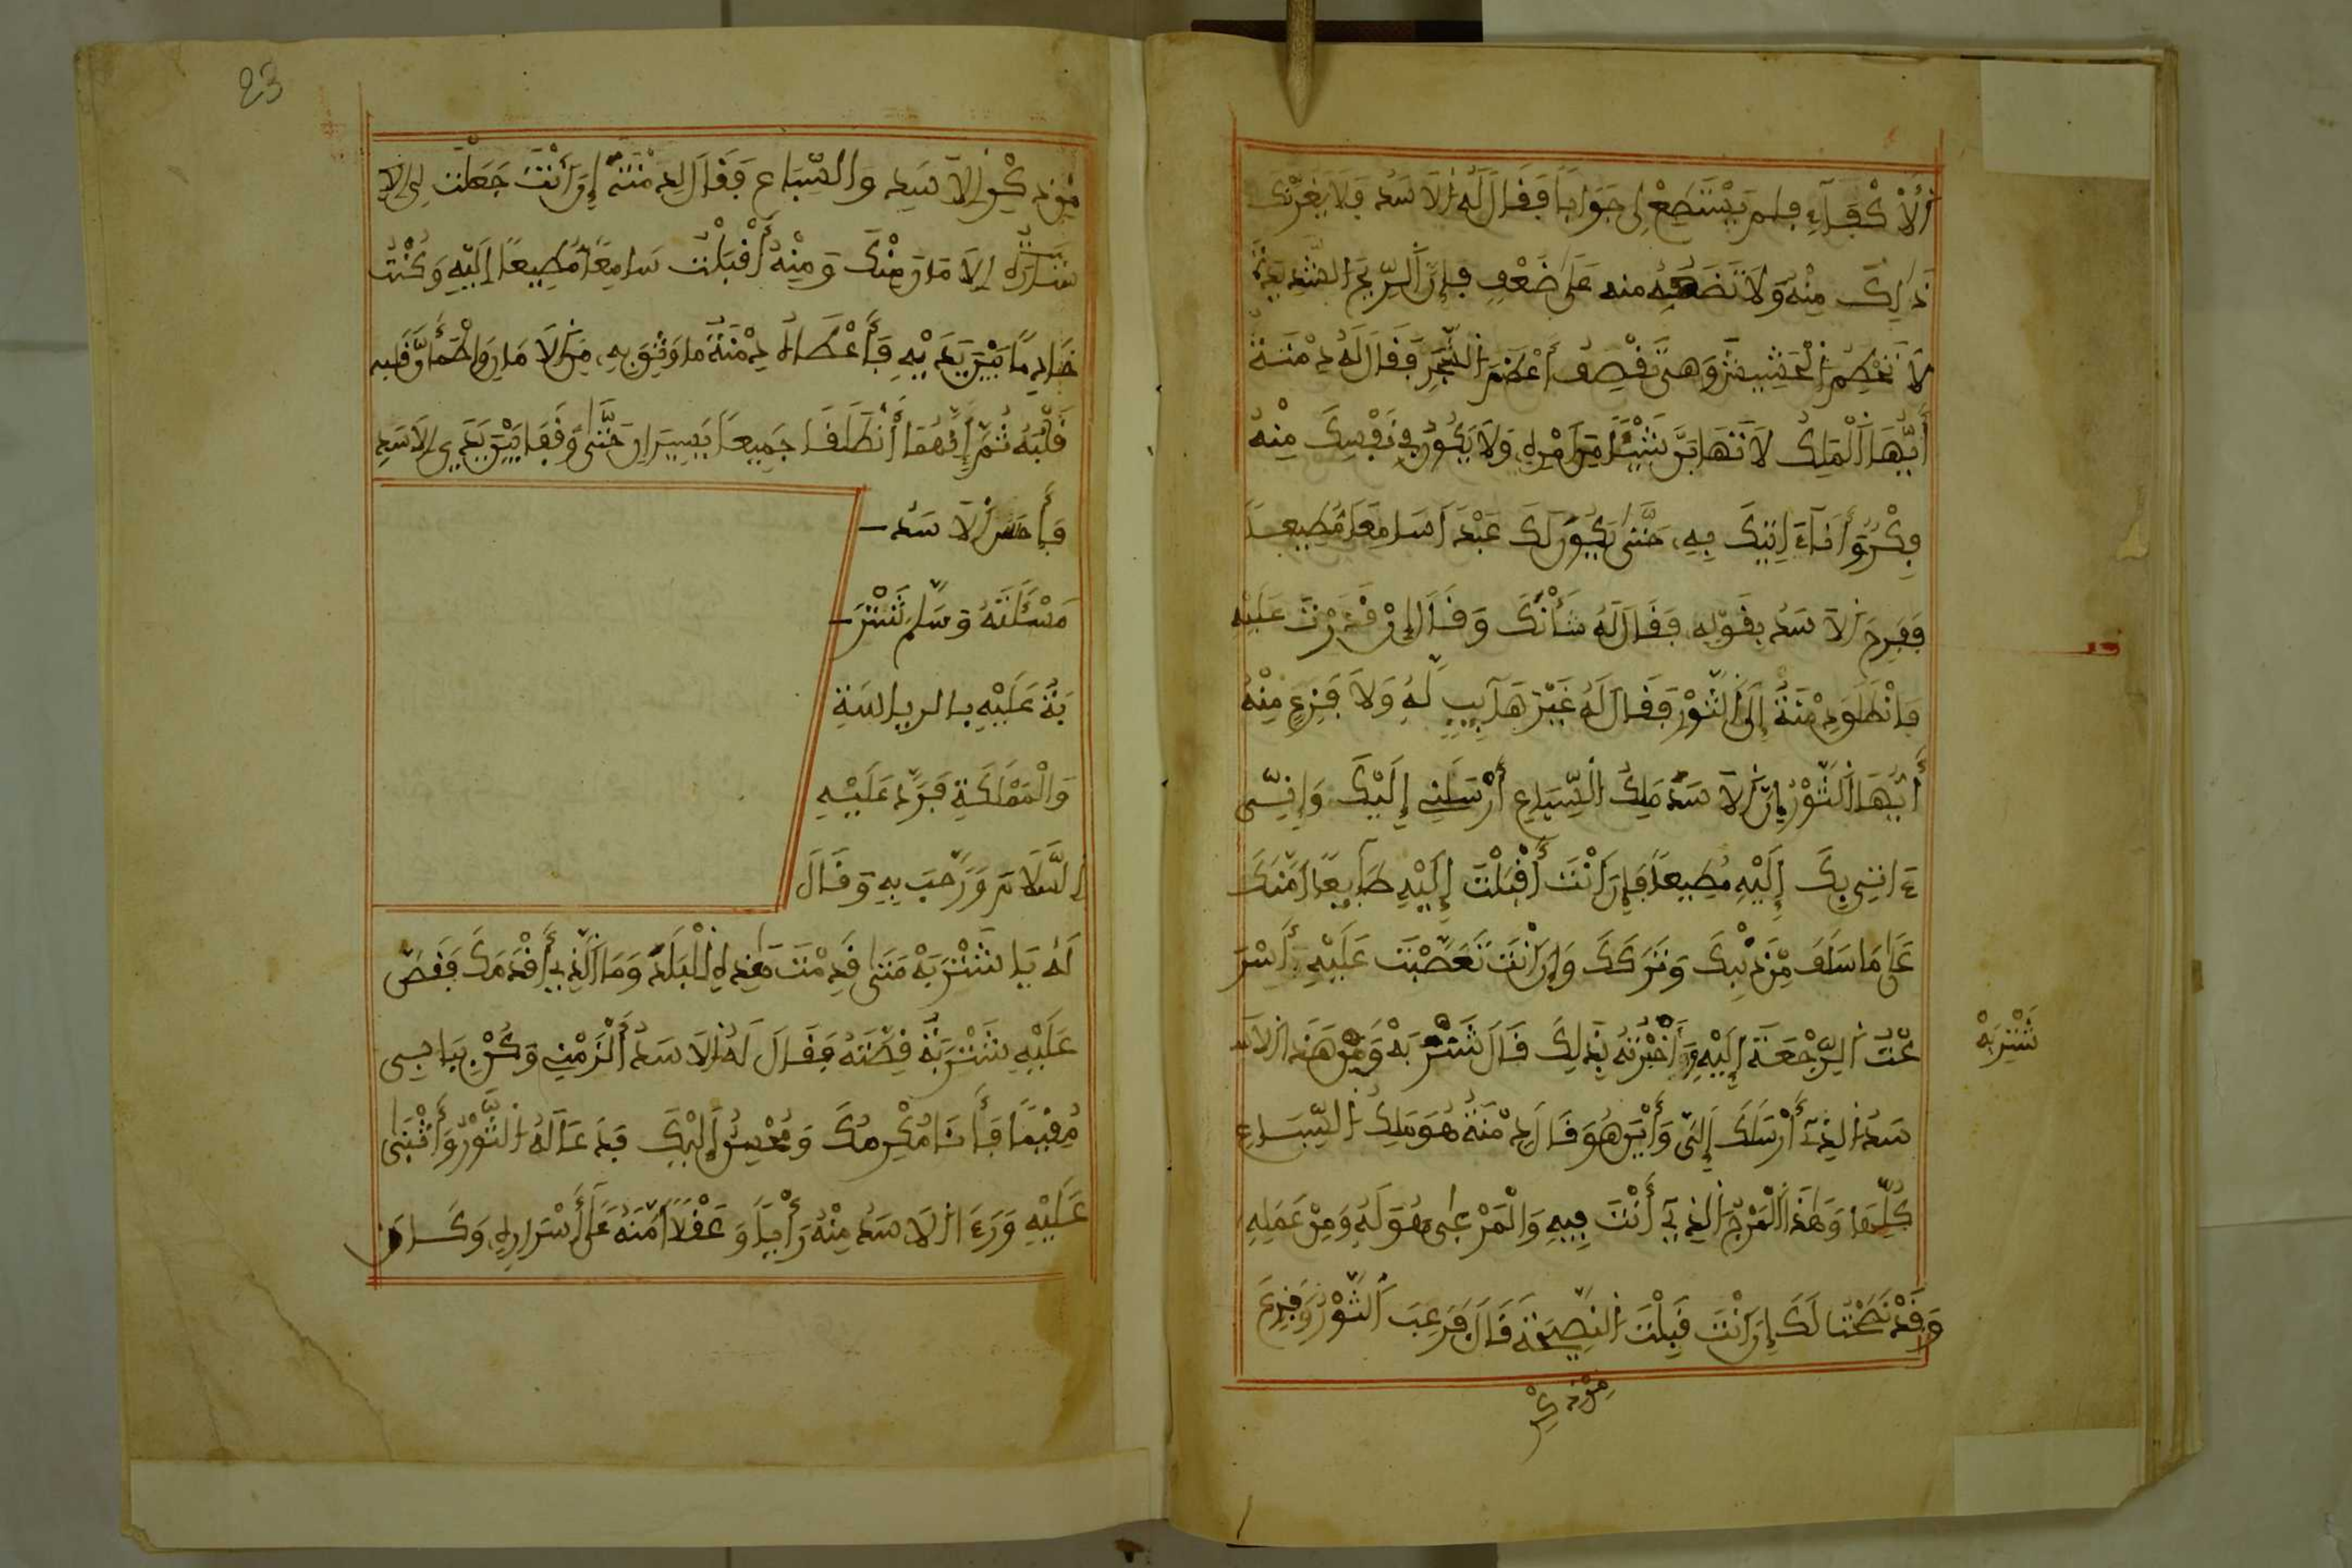 الاكفاء فلم يستطع لي جوابا فقال له الاسد فلا يغرنك
ذالك منه ولا تضعه منه على ضعف فإن الريح الشديدة
لا تحطم الحشيش وهي تقصف أعظم الشجر فقال له دمنة
أيها الملك لا تهابن شيئا من أمره ولا يكون في نفسك منه
فكر وأنا ءاتيك به حتى يكون لك عبدا سامعا مطيعا
ففرح الاسد بقوله فقال له شأنك وقال إن قدرت عليه
فانطلق دمنة إلى الثور فقال له غير هآيب له ولا فزع منه
أيها الثور إن الاسد ملك السباع أرسلني إليك وإني
ءاتي بك إليه مطيعا فإن أنت أقبلت إليه طآيعا أمنك
على ما سلف من ذنبك وتركك وإن أنت تعصبت عليه أسر
عت الرجعة إليه وأخبرته بذلك قال شتربة ومن هذا الا
شتربة
سد الذي أرسلك إلي وأين هو قال دمنة هو ملك السباع
كلها وهذا المرج الذي أنت فيه والمرعى هو له ومن عمله
وقد نصحت لك إن أنت قبلت النصيحة قال فرعب الثور وفزع
من ذكر
23
من ذكر الاسد والسباع فقال لدمنة إن أنت جعلت لي الا
مان منك ومنه أقبلت سامعا مطيعا إليه وكنت
خادما بين يديه فأعطاه دمنة ما وثق به من الامان واطمأن قلبه
قلبه ثم إنهما أنطلقا جميعا يسيران حتى وقفا بين يدي الاسد
فأحسن الاسد
مسئلته وسلم شتر
بة عليه بالرياسة
والمملكة فرد عليه
السلام ورحب به وقال
له يا شتربة متى قدمت هذه البلد وما الذي أقدمك فقص
عليه شتربة قصته فقال له الاسد ألزمني وكن بباحي
مقيما فأنا مكرمك ومحسن إليك فدعا له الثور وأثنى
عليه ورءا الاسد منه رأيا وعقلا أمنه على أسراره وكان